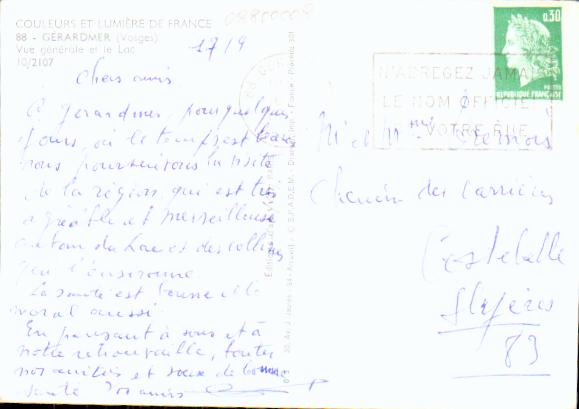 COULEURS ET LUMIÈRE DE FRANCE
88 - GÉRARDMER (Vosges)
Vue générale et le Lac
10/2107
17/9
Chers amis
à Gerardmer, pour quelques
jours, où le temps est beau
nous poursuivons la visite
de la région qui est très
agréable et merveilleuse
autour du Lac et des collines
qui l'environne
La santé est bonne et le
moral aussi
En pensant à vous et à
notre retrouvaille, toutes
nos amitiés et voeux de bonne
santé
0,30
REPUBLIQUE FRANÇAISE
N'ABREGEZ JAMAIS
LE NOM OFFICIEL
VOTRE RUE
Mr et Mme
Chemin des Carrières
Costebelle
Hyères
83